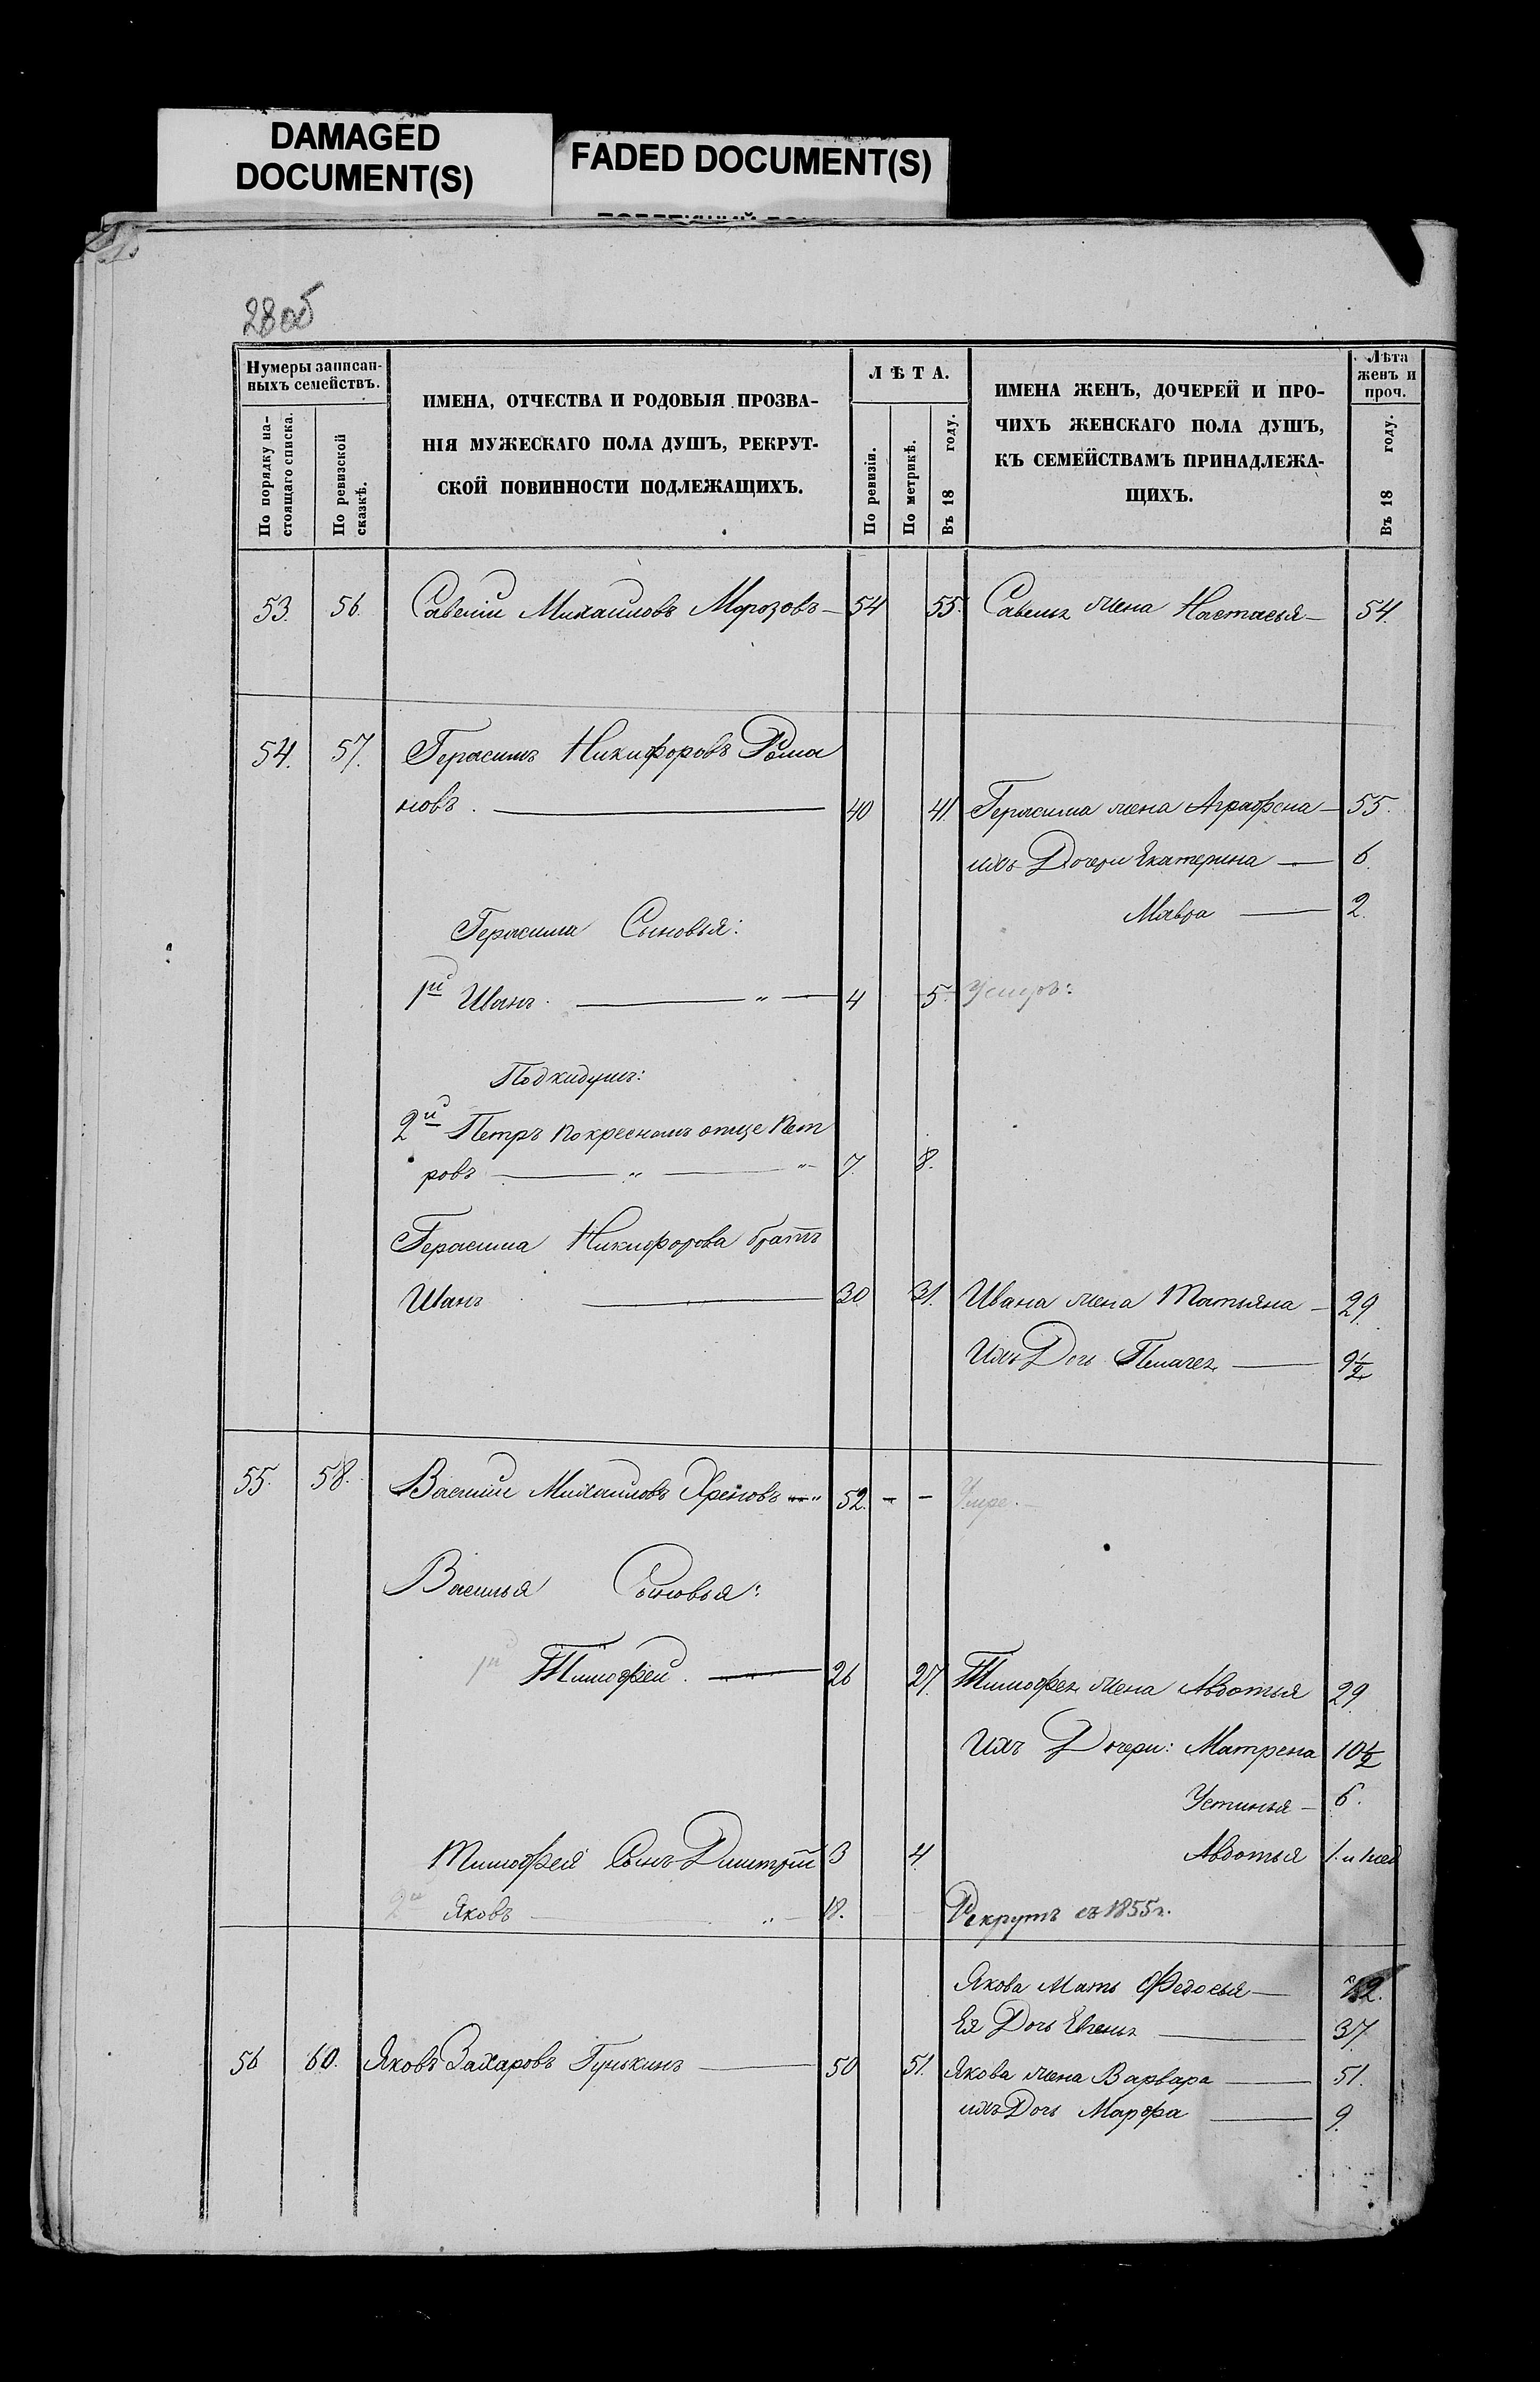 DAMAGED
DOCUMENT(S)
FADED DOCUMENT(S)
28об
Нумеры записан-
ныхъ семействъ.
По порядку на-
стоящаго списка.
По ревизской
сказкѣ.
ИМЕНА, ОТЧЕСТВА И РОДОВЫЯ ПРОЗВА-
НІЯ МУЖЕСКАГО ПОЛА ДУШЪ, РЕКРУТ-
СКОЙ ПОВИННОСТИ ПОДЛЕЖАЩИХЪ.
ЛѢТА.
По ревизіи.
По метрикѣ.
Въ 18 году.
ИМЕНА ЖЕНЪ, ДОЧЕРЕЙ И ПРО-
ЧИХЪ ЖЕНСКАГО ПОЛА ДУШЪ,
КЪ СЕМЕЙСТВАМЪ ПРИНАДЛЕЖА-
ЩИХЪ.
Лѣта
женъ и
проч.
Въ 18 году.
53. 56. Савелій Михайловъ Морозовъ — 54 55. Савелья жена Настасья — 54.
54. 57. Герасимъ Никифоровъ Рома
новъ. — 40 41. Герасима жена Аграфена — 55.
ихъ Дочери Екатерина — 6.
Мавра — 2.
Герасима Сыновья:
1й Иванъ. — " — 4 5. Умеръ:
Подкидыш:
2й Петръ по кресномъ отце Пет
ровъ — " — "— 7. 8.
Герасима Никифорова братъ
Иванъ — 30 31. Ивана жена Татьяна — 29.
Ихъ Дочь Пелагея — 9½
55. 58. Василій Михайловъ Хреновъ — " 52. - - Умре. —
Василья Сыновья:
1й Тимофей. — 26 27. Тимофея жена Авдотья 29.
Ихъ Дочери: Матрена 10½
Устинья — 6.
Тимофея Сынъ Дмитрій 3 4. Авдотья 1. и 1 мед
2й Яковъ — " — 18. Рекрутъ съ 1855 г.
Якова Мать Федосья —
Ея Дочь Евгенья — 37.
56 60. Яковъ Захаровъ Гунькинъ — 50 51. Якова жена Варвара — 51.
ихъ Дочь Марфа — 9.